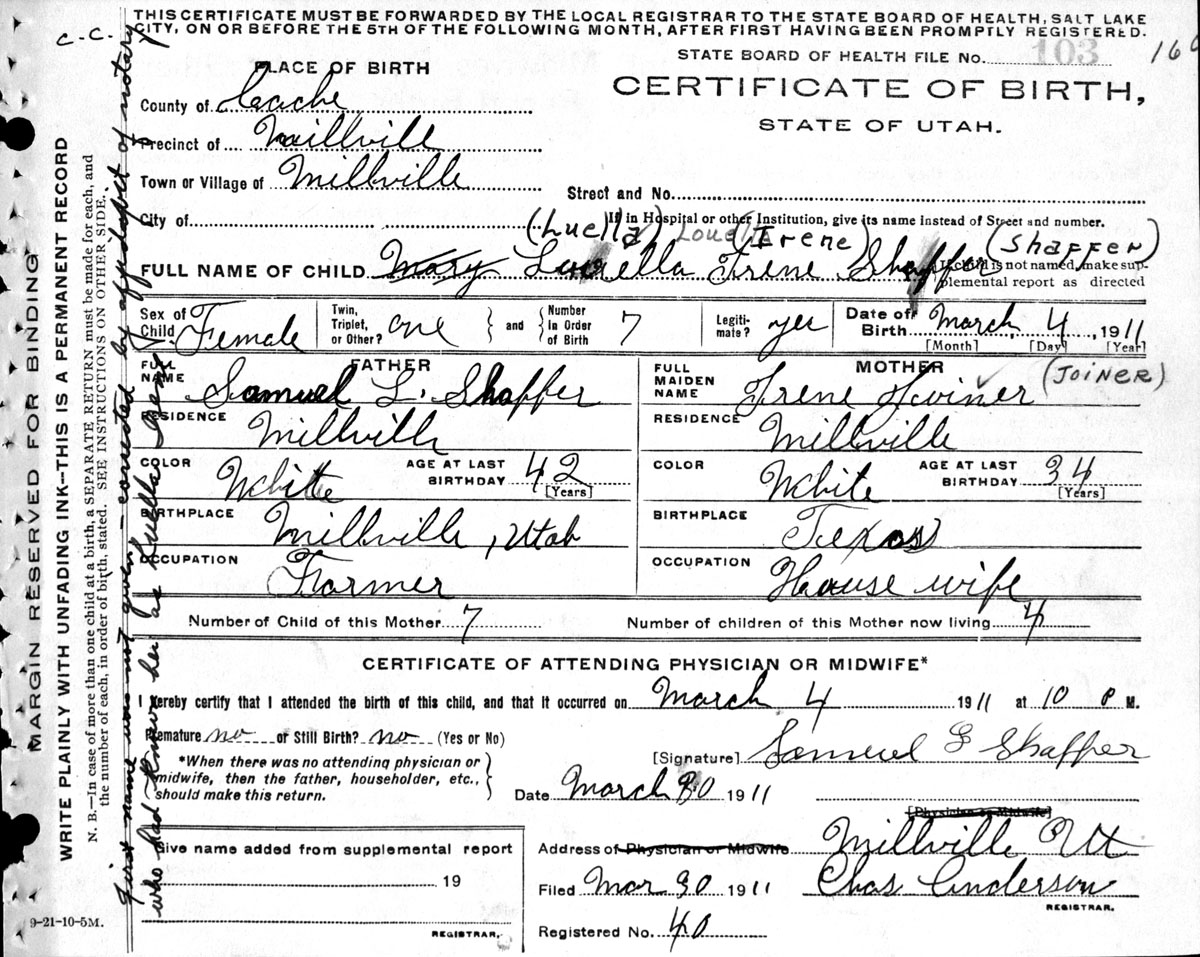 THIS CERTIFICATE MUST BE FORWARDED BY THE LOCAL REGISTRAR TO THE STATE BOARD OF HEALTH, SALT LAKE
CITY, ON OR BEFORE THE 5TH OF THE FOLLOWING MONTH, AFTER FIRST HAVING BEEN PROMPTLY REGISTERED.
C.C.
STATE BOARD OF HEALTH FILE No. 103
PLACE OF BIRTH
CERTIFICATE OF BIRTH,
STATE OF UTAH.
County of Cache
Precinct of Millvill
Town or Village of Millville
Street and No.
City of
If in Hospital or other Institution, give its name instead of Street and number.
(Luella) Louella (Irene) (Shaffer)
FULL NAME OF CHILD Mary Luella Irene Shaffer
If child is not named, make supplemental report as directed
Sex of Child Female
Twin, Triplet, or Other? one
and
Number In Order of Birth 7
Legitimate? yes
Date of Birth March 4, 1911
[Month] [Day] [Year]
FATHER
FULL NAME Samuel L. Shaffer
RESIDENCE Millville
COLOR White
AGE AT LAST BIRTHDAY 42
[Years]
BIRTHPLACE Millville, Utah
OCCUPATION Farmer
MOTHER
FULL MAIDEN NAME Irene (JOINER)
RESIDENCE Millville
COLOR White
AGE AT LAST BIRTHDAY 34
[Years]
BIRTHPLACE Texas
OCCUPATION House wife
Number of Child of this Mother 7
Number of children of this Mother now living 4
CERTIFICATE OF ATTENDING PHYSICIAN OR MIDWIFE*
I hereby certify that I attended the birth of this child, and that it occurred on March 4 1911 at 10 P M.
Premature no or Still Birth? no (Yes or No)
*When there was no attending physician or
midwife, then the father, householder, etc.,
should make this return.
[Signature] Samuel L Shaffer
Date March 30 1911
[Physician or Midwife]
Address of Physician or Midwife Millville Ut
Give name added from supplemental report
19
REGISTRAR.
Filed Mar 30 1911 Chas Anderson
REGISTRAR.
Registered No. 40
9-21-10-5M.
MARGIN RESERVED FOR BINDING
WRITE PLAINLY WITH UNFADING INK—THIS IS A PERMANENT RECORD
N. B.—In case of more than one child at a birth, a SEPARATE RETURN must be made for each, and
the number of each, in order of birth, stated. SEE INSTRUCTIONS ON OTHER SIDE.
First name was not given - corrected by affidavit of notary
who had known her as Luella